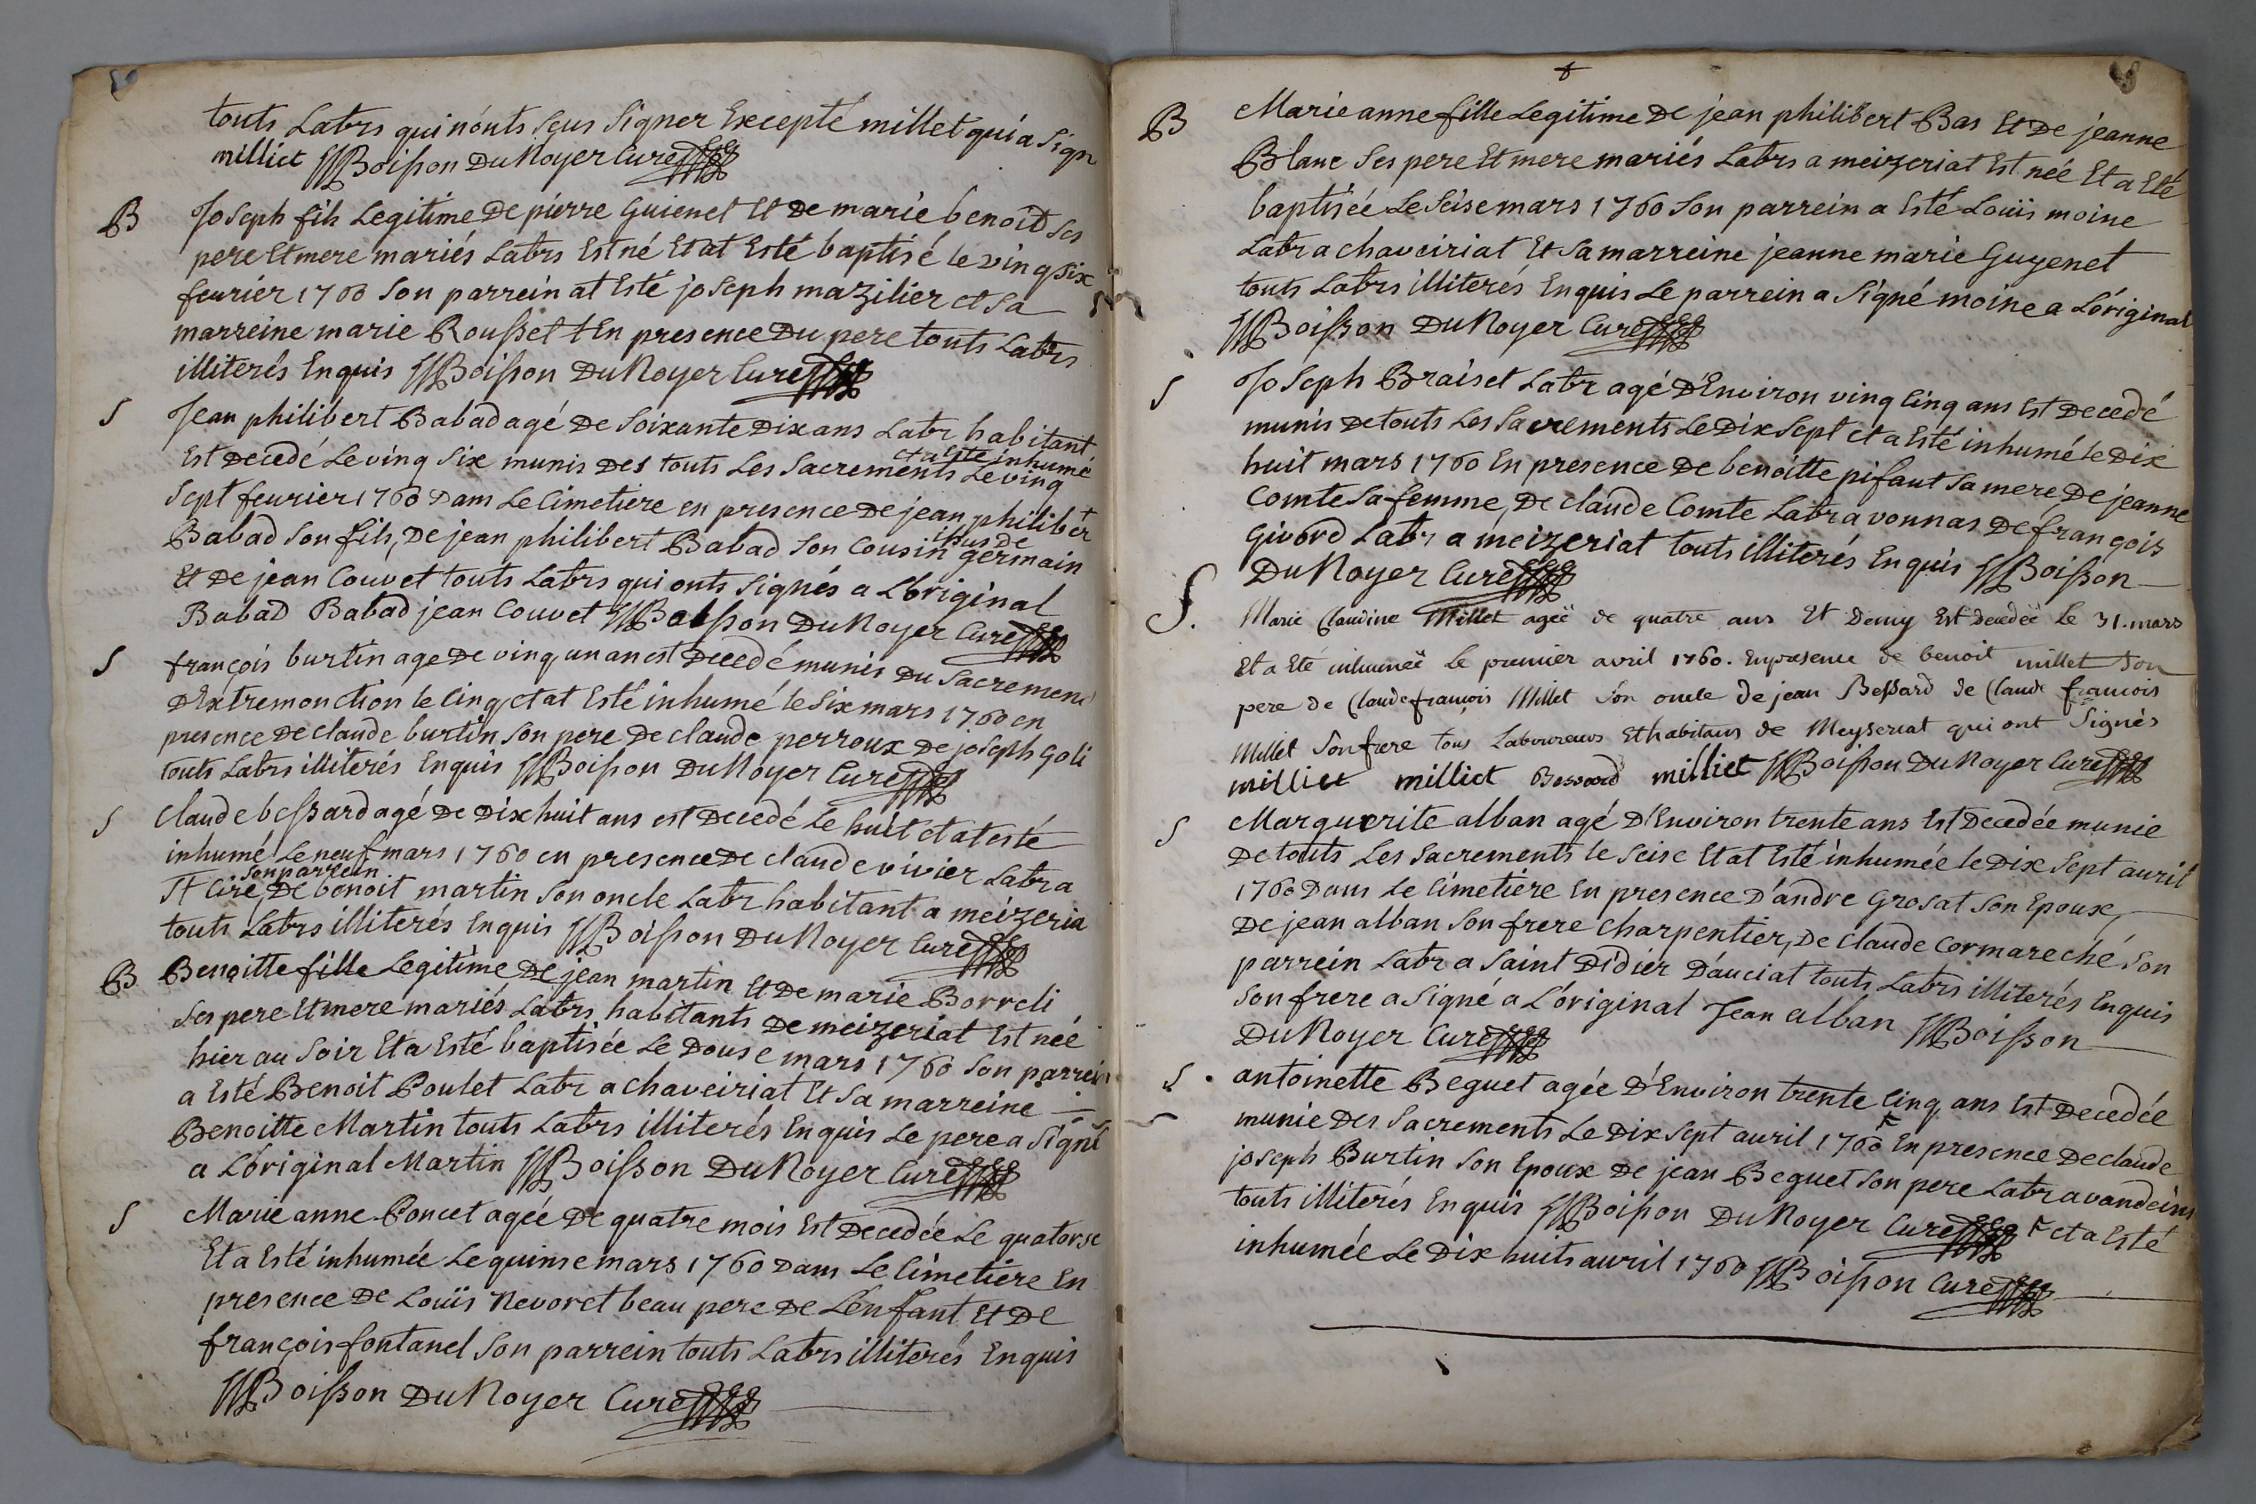 touts Labrs qui nónts sçus signer Excepté millet qui a signé
milliet Boisson Du Noyer Curé
B Joseph fils Legitime De pierre Guienet Et De marie benoit ses
pere Et mere mariés Labrs Est né Et at Esté baptisé le ving six
feurier 1760 son parrein at Esté joseph mazilier et sa
marreine marie Rousset En presence Du pere touts Labrs
illiterés Enquis Boisson Du Noyer Curé
S Jean philibert Babad agé De soixante Dix ans Labr habitant
Est Decedé Le ving six munis Des touts Les sacrements et a esté inhumé Le ving
sept feurier 1760 Dans Le Cimetiere en presence De jean philibert
Babad son fils, De jean philibert Babad son Cousin issus de germain
Et De jean Couvet touts Labrs qui onts signés a L'original
Babad Babad jean Couvet Boisson Du Noyer Curé
S françois burtin age De ving un an est Decedé munis Du sacrement
D'Extremonction le Cinq et at Esté inhumé le six mars 1760 en
presence De claude burtin son pere De claude perroux De joseph Goli
touts Labrs illiterés Enquis Boisson Du Noyer Curé
S Claude bessard agé De Dix huit ans est Decedé Le huit et at esté
inhumé Le neuf mars 1760 en presence De claude vivier Labr a
St Cire, son parrein De benoit martin son oncle Labr habitant a meizeria
touts Labrs illiterés Enquis Boisson Du Noyer Curé
B Benoitte fille Legitime De jean martin Et De marie Borreli
ses pere Et mere mariés Labrs habitants De meizeriat Est née
hier au soir Et a Esté baptisée Le Douse mars 1760 son parrein
a Esté Benoit Poulet Labr a chaveiriat Et sa marreine
Benoitte Martin touts Labrs illiterés Enquis Le pere a signé
a L'original Martin Boisson Du Noyer Curé
S Marie anne Poncet agée De quatre mois Est Decedée Le quatorse
Et a Esté inhumée Le quinse mars 1760 Dans Le Cimetiere En
presence De Loüis Nevoret beau pere De L'enfant Et De
françois fontanel son parrein touts Labrs illiterés Enquis
Boisson Du Noyer Curé
B Marie anne fille Legitime De jean philibert Bas Et De jeanne
Blanc ses pere Et mere mariés Labrs a meizeriat Est née Et a Eté
baptisée Le seise mars 1760 son parrein a Esté Loüis moine
Labr a chaveiriat Et sa marreine jeanne marie Guyenet
touts Labrs illiterés Enquis Le parrein a signé moine a L'original
Boisson Du Noyer Curé
S Joseph Braiset Labr agé D'Environ ving Cinq ans Est Decedé
munis De touts Les sacrements Le Dix sept et a Esté inhumé le Dix
huit mars 1760 En presence De benoitte pifaut sa mere, De jeanne
Comte sa femme, De claude Comte Labr a vonnas De françois
Givord Labr a meizeriat touts illiterés Enquis Boisson
Du Noyer Curé
S. Marie Claudine Millet ageë de quatre ans Et Demy Est decedeë Le 31. mars
Et a Eté inhumeë Le premier avril 1760. En presence de benoit millet son
pere de Claude françois Millet son oncle de jean Bessard de Claude françois
Millet son frere tous Laboureurs Et habitans de Meyseriat qui ont signés
milliet milliet Bessard milliet Boisson Du Noyer Curé
S Marguerite alban agé D'Environ trente ans Est Decedée munie
De touts Les sacrements le seise Et at Esté inhumée le Dix sept auril
1760 Dans Le Cimetiere En presence D'andre Grosat son Epoux,
De jean alban son frere charpentier, De claude Cormareché son
parrein Labr a saint Didier D'auciat touts Labrs illiterés Enquis
son frere a signé a L'original Jean alban Boisson
Du Noyer Curé
S antoinette Beguet agée D'Environ trente Cinq ans Est Decedée
munie Des sacrements Le Dix sept auril 1760 En presence De claude
joseph Burtin son Epoux De jean Beguet son pere Labr a vandeins
touts illiterés Enquis Boisson Du Noyer Curé et a Esté
inhumée Le Dix huits auril 1760 Boisson Curé